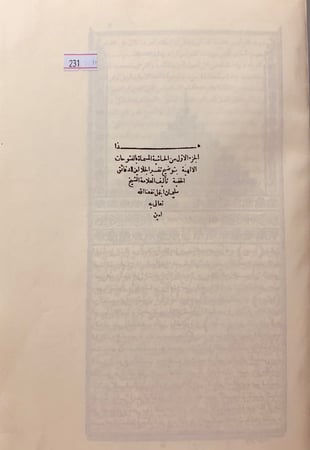 231
هـــذا
الجزء الاول من الحاشية المسماة بالفتوحات
الالهية بتوضيح تفسير الجلالين للدقائق
الخفية تأليف العلامة الشيخ
سليمان الجمل نفعنا الله
تعالى به
امين